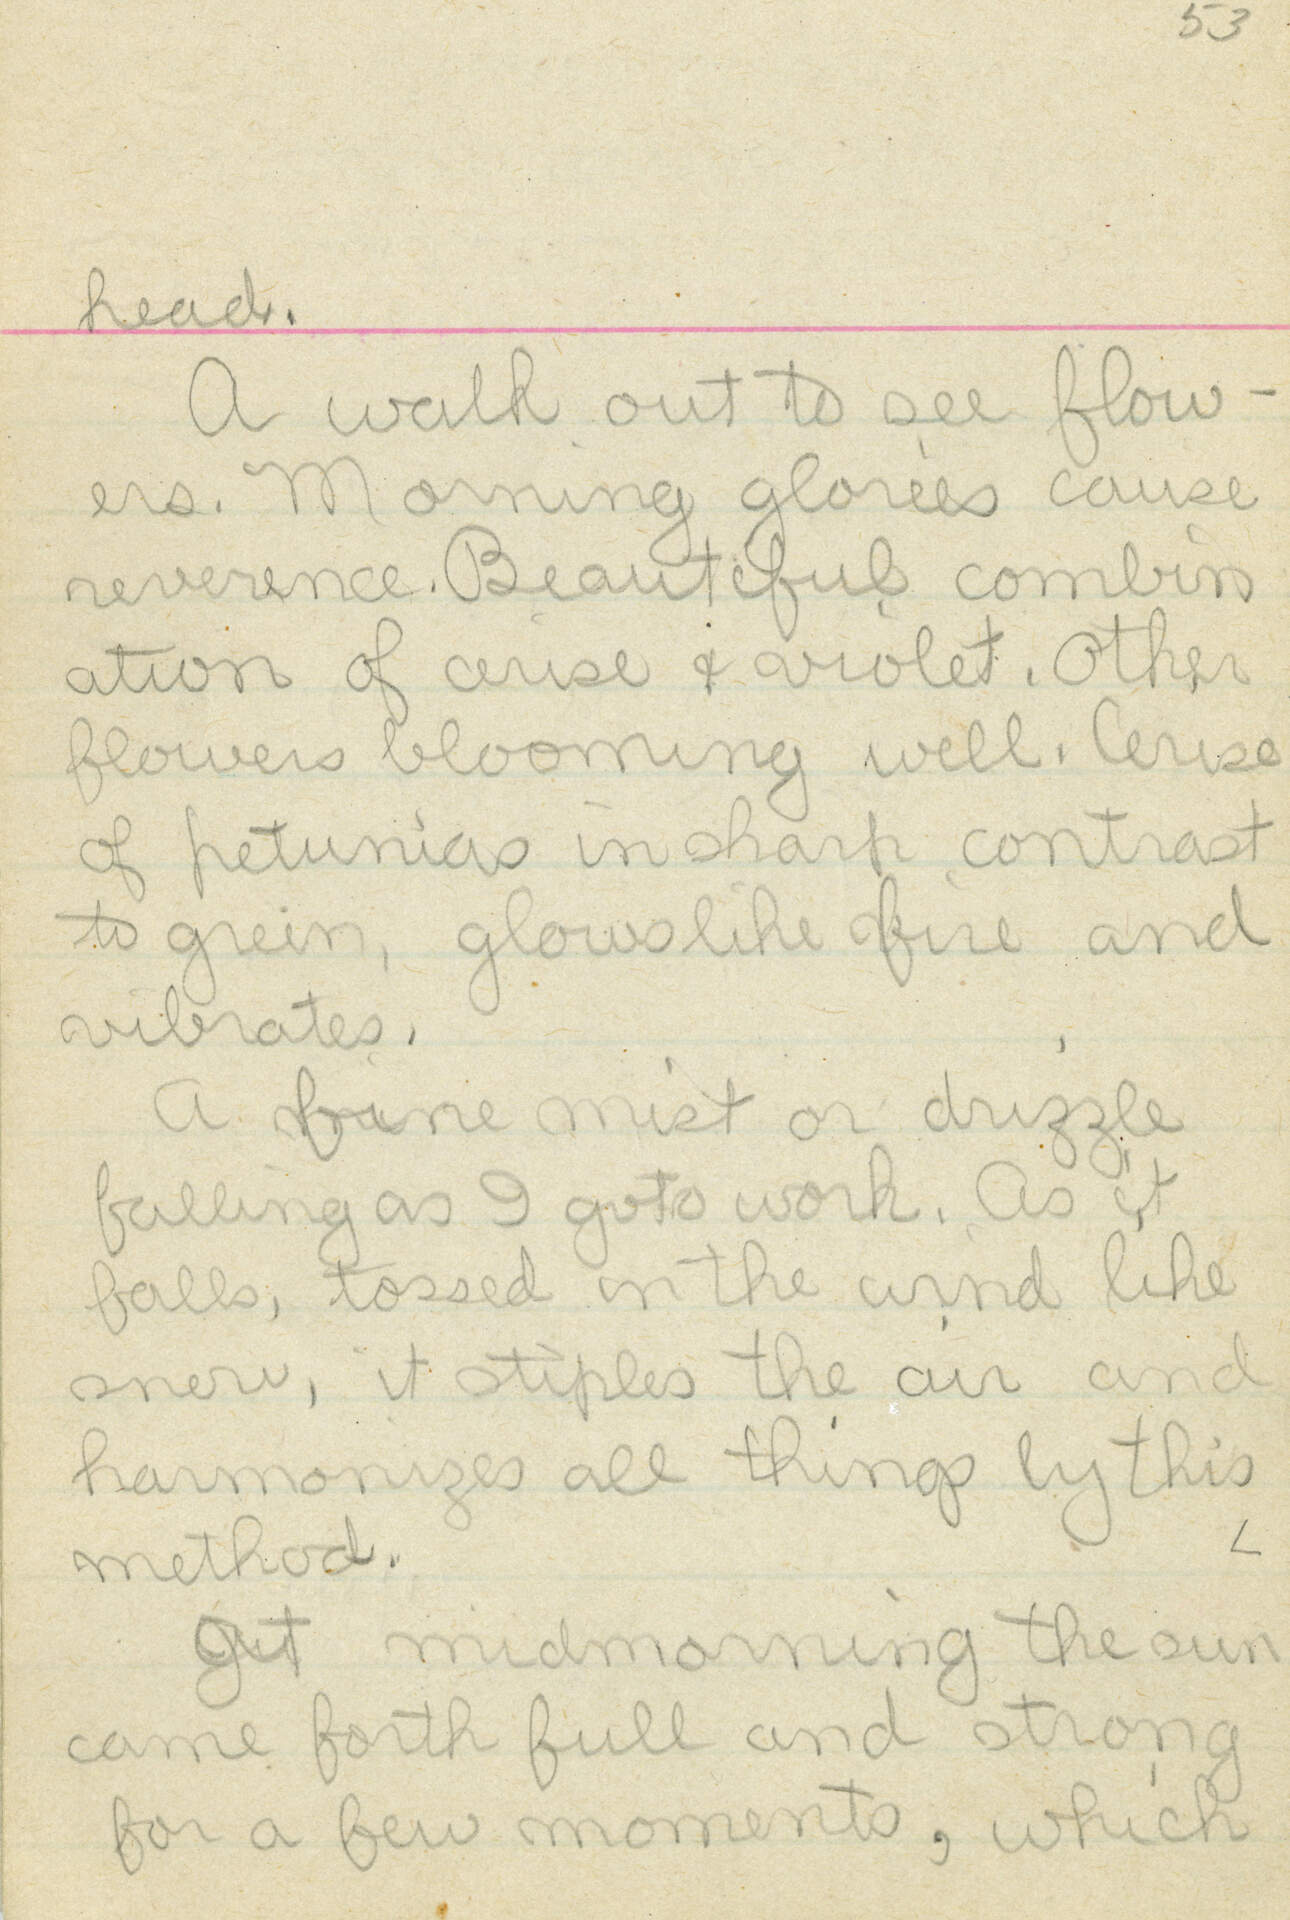 53
head.
A walk out to see flow-
ers. Morning glories cause
reverence. Beautiful combin
ation of cerise & violet. Other
flowers blooming well. Cerise
of petunias in sharp contrast
to green, glows like fire and
vibrates.
A fine mist or drizzle
falling as I go to work. As it
falls, tossed in the wind like
snow, it stiples the air and
harmonizes all things by this
method.
midmorning the sun
came forth full and strong
for a few moments, which